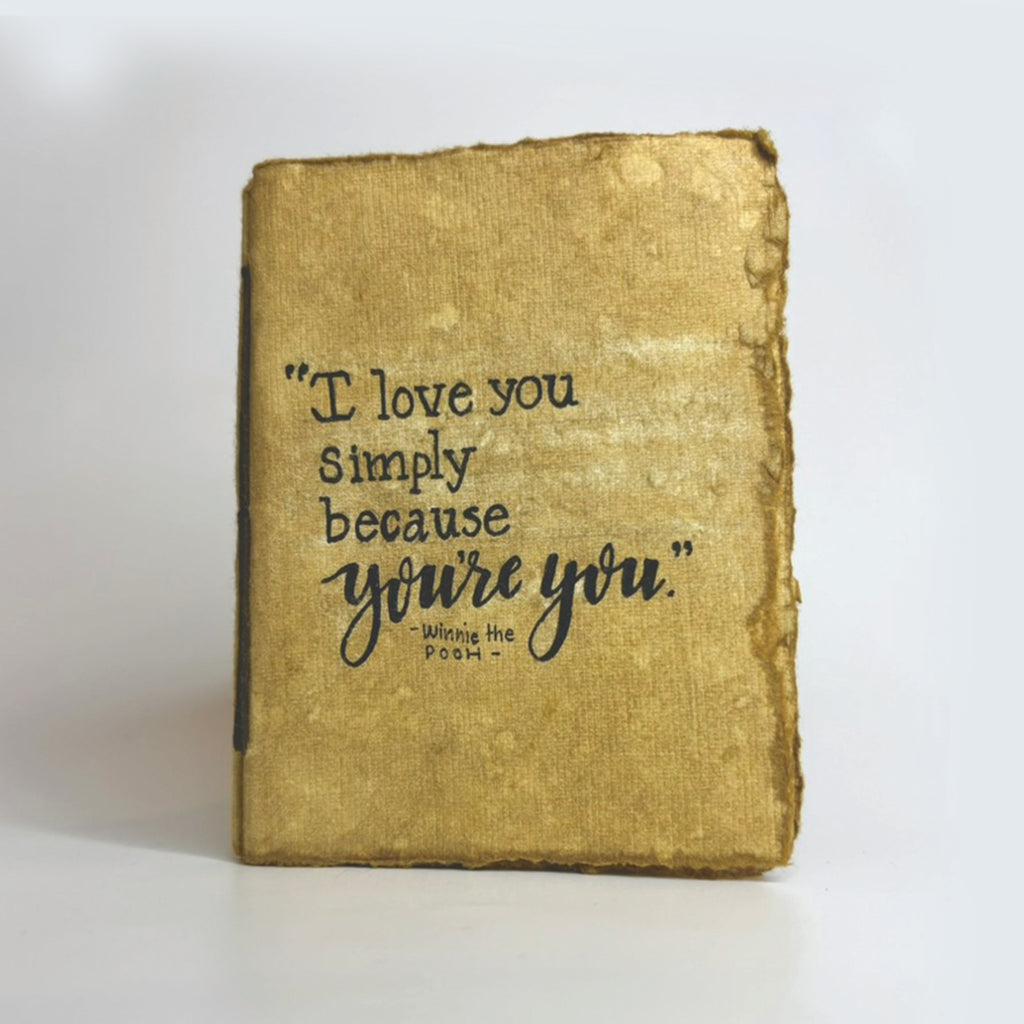 “I love you
simply
because
you're you.”
-Winnie the
POOH-